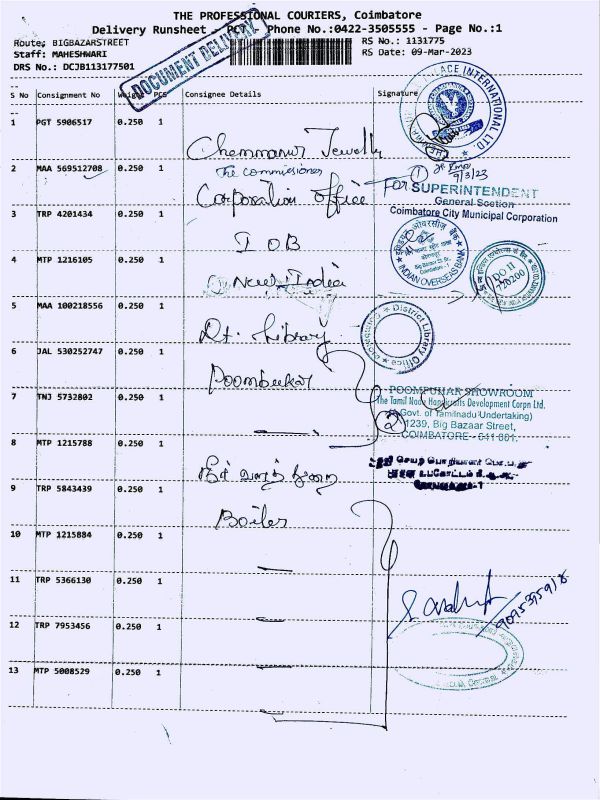 THE PROFESSIONAL COURIERS, Coimbatore
Delivery Runsheet - PCT Phone No.:0422-3505555 - Page No.:1
Route: BIGBAZARSTREET RS No.: 1131775
Staff: MAHESHWARI RS Date: 09-Mar-2023
DRS No.: DCJB113177501
DOCUMENT DELIVERY
S No Consignment No Weight PCS Consignee Details Signature
1 PGT 5906517 0.250 1 Chemmanur Jewellery
PALACE INTERNATIONAL LTD.
2 MAA 569512708 0.250 1 The commissioner
Corporation office
9/3/23
For SUPERINTENDENT
General Section
Coimbatore City Municipal Corporation
3 TRP 4201434 0.250 1 IOB
INDIAN OVERSEAS BANK
4 MTP 1216105 0.250 1 New India
DO II
720200
5 MAA 100218556 0.250 1 Dt. Library
District Library Office
6 JAL 530252747 0.250 1 Poompukar
7 TNJ 5732802 0.250 1
2
POOMPUHAR SHOWROOM
The Tamil Nadu Handicrafts Development Corpn Ltd.
(A Govt. of Tamilnadu Undertaking)
1239, Big Bazaar Street,
COIMBATORE - 641 001.
8 MTP 1215788 0.250 1
9 TRP 5843439 0.250 1 Boiler
10 MTP 1215884 0.250 1
11 TRP 5366130 0.250 1
9095395918
12 TRP 7953456 0.250 1
13 MTP 5008529 0.250 1